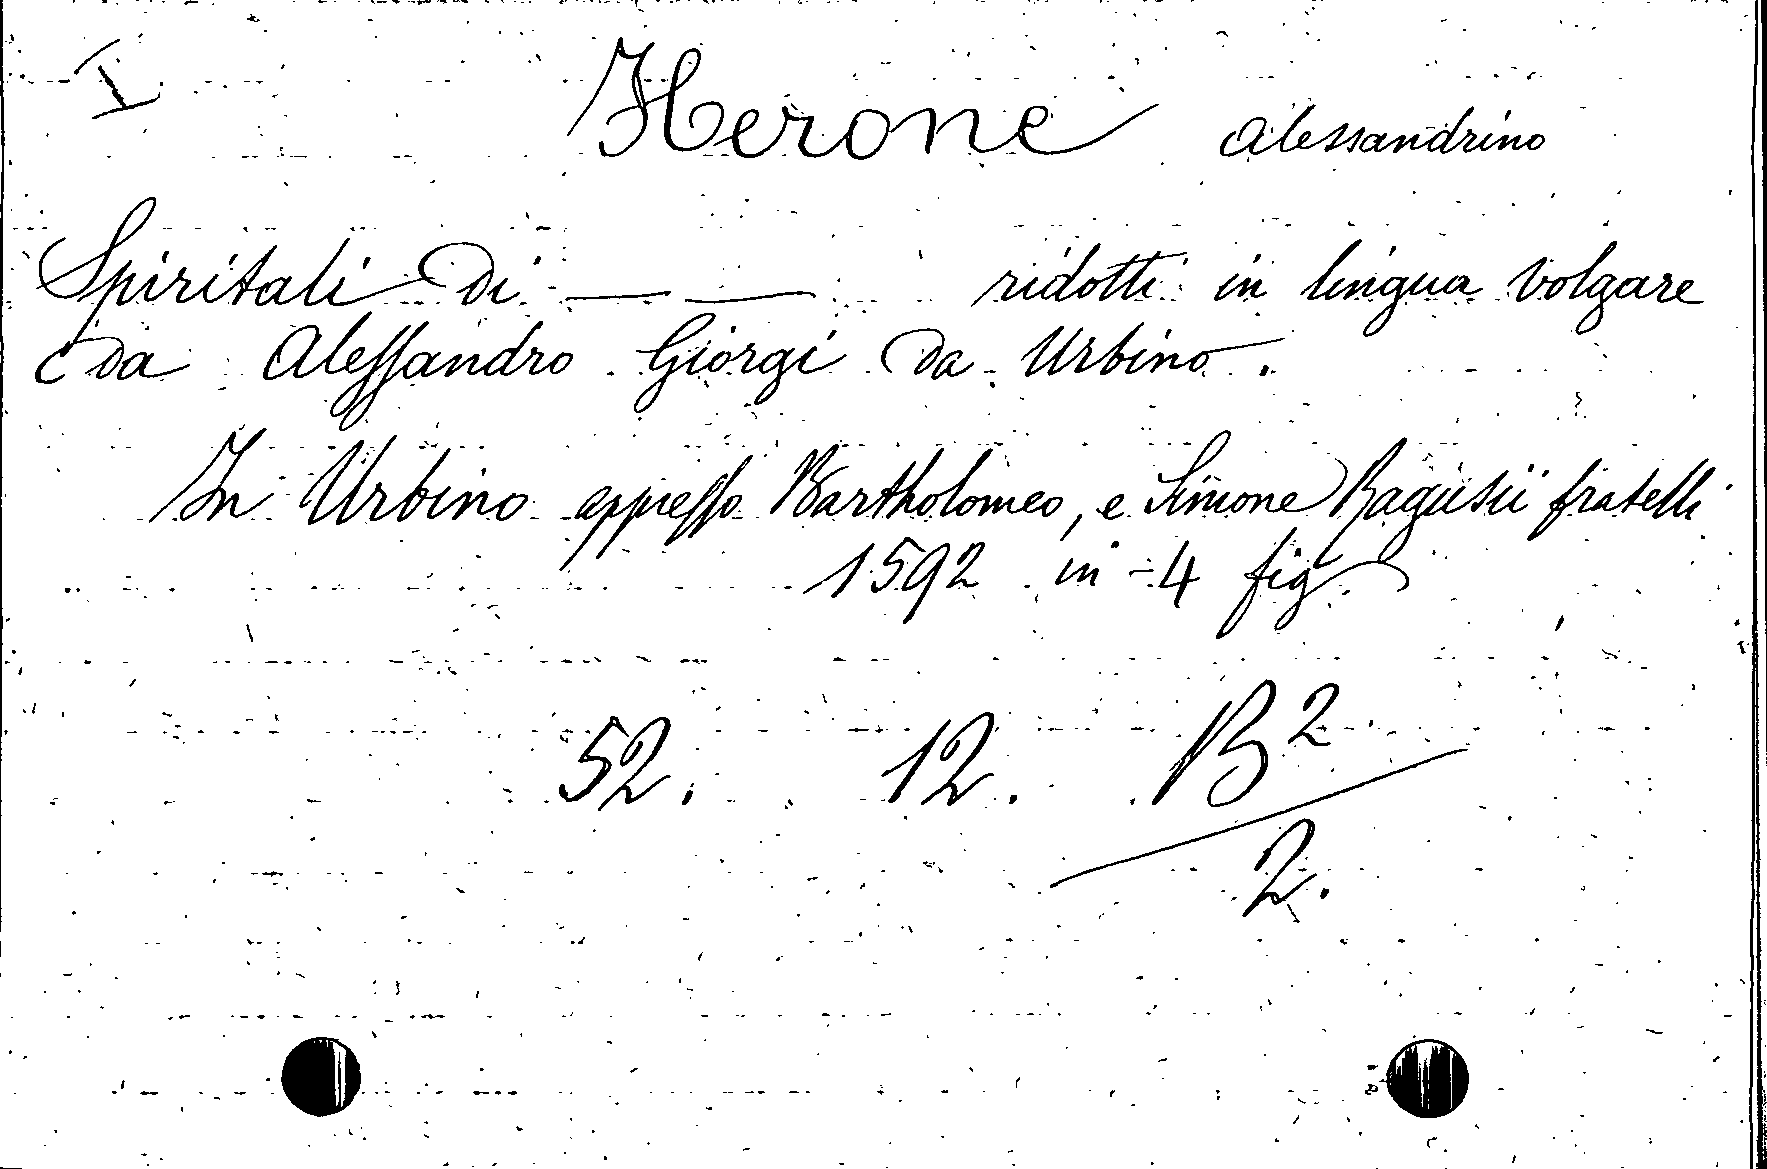 I
Herone Alessandrino
Spiritali di — — ridotti in lingua volgare
da Alessandro Giorgi da Urbino.
In Urbino appresso Bartholomeo, e Simone Ragusii fratelli
1592 in-4 fig.
52. 12. B2
2.